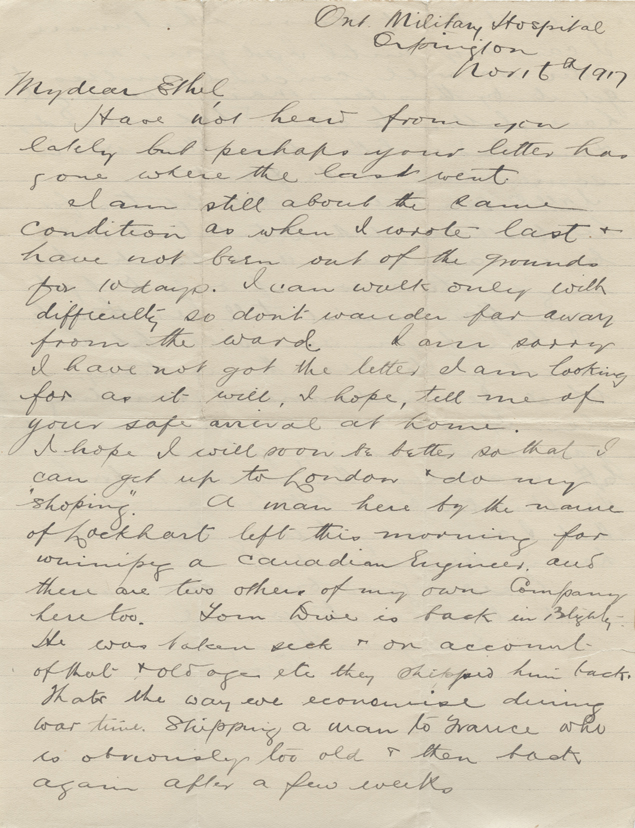 Ont. Military Hospital
Orpington
Nov. 16th 1917
My dear Ethel
Have not heard from you
lately but perhaps your letter has
gone where the last went
I am still about the same
condition as when I wrote last. +
have not been out of the grounds
for 10 days. I can walk only with
difficulty so don't wander far away
from the ward. I am sorry
I have not got the letter I am looking
for as it will, I hope, tell me of
your safe arrival at home.
I hope I will soon be better so that I
can get up to London + do my
"shoping". A man here by the name
of Lockhart left this morning for
winnipeg a Canadian Engineer. and
there are two others of my own Company
here too. Tom Dive is back in Blighty.
He was taken sick + on account
of that + old age etc they shipped him back.
Thats the way we economise during
war time. Shipping a man to France who
is obviously too old + then back
again after a few weeks